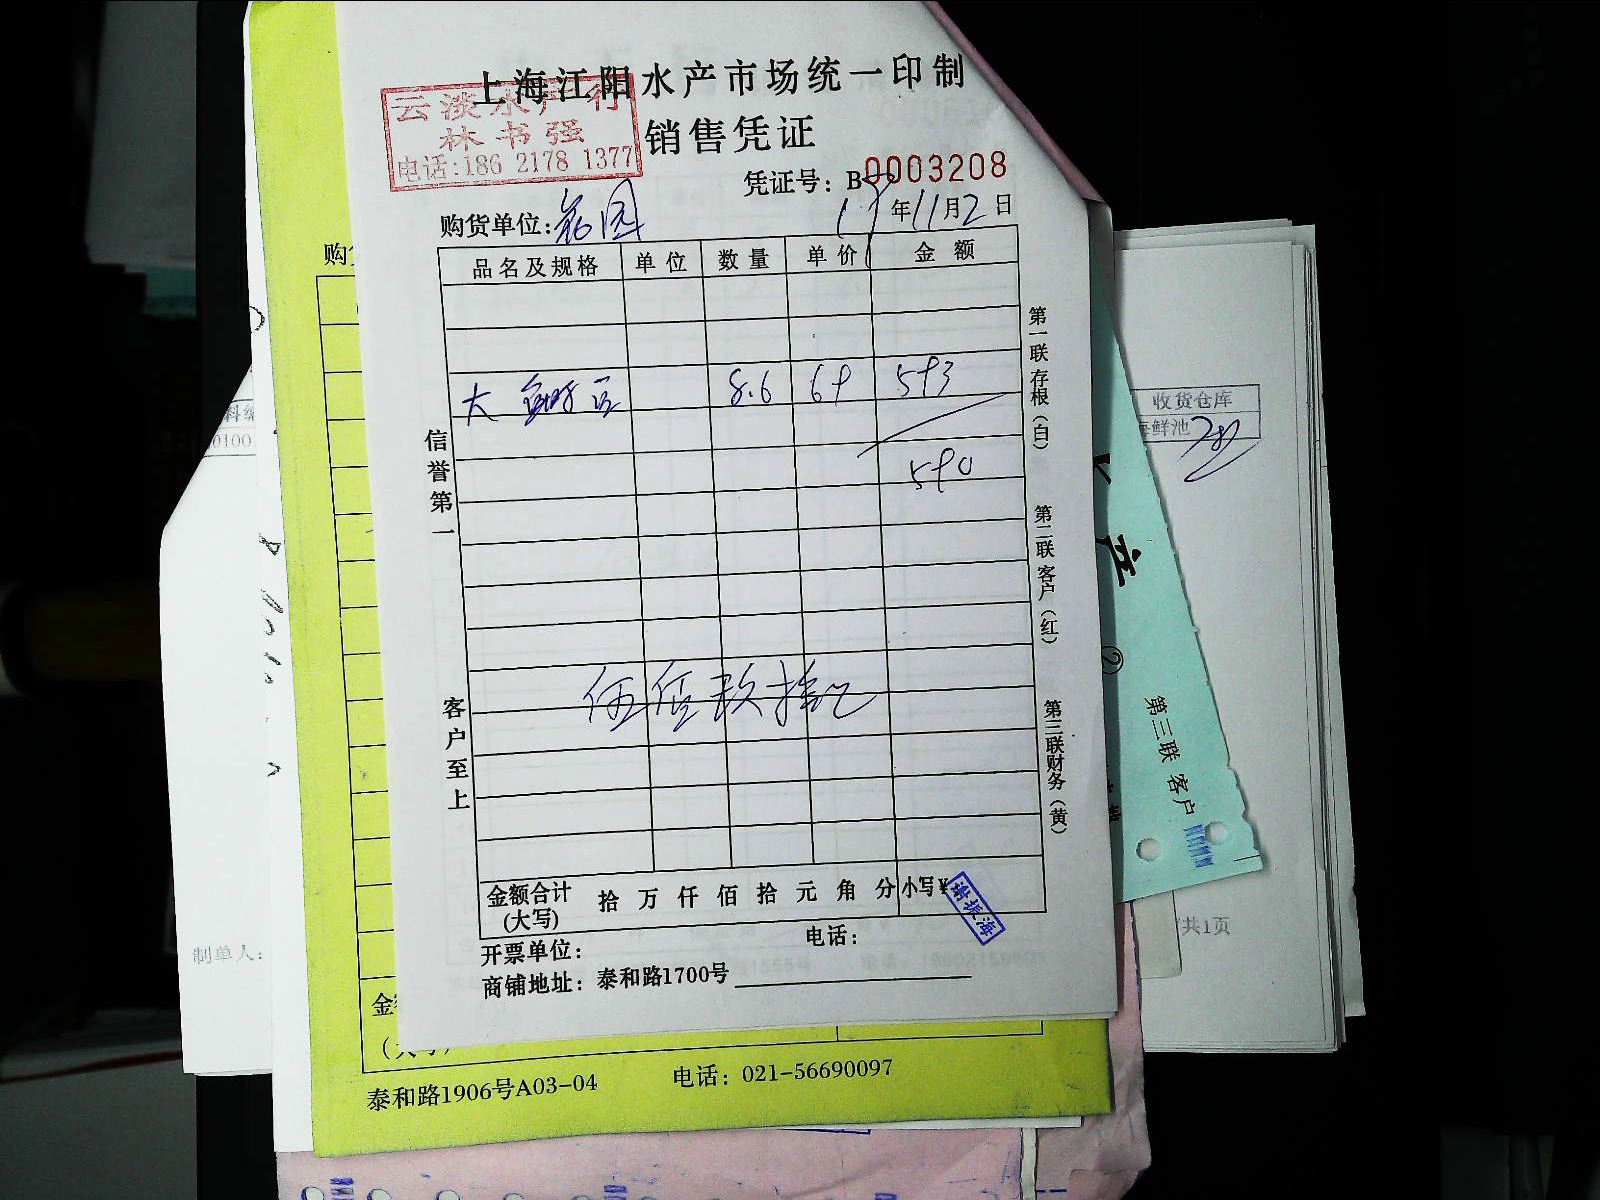 上海江阳水产市场统一印制
云淡水产行
林书强
电话:186 2178 1377
销售凭证
凭证号：B 0003208
购货单位:
17年11月2日
品名及规格 单位 数量 单价 金额
大 8.6 69 593
590
伍佰玖拾
信誉第一
客户至上
第一联存根（白）
第二联客户（红）
第三联财务（黄）
金额合计(大写) 拾 万 仟 佰 拾 元 角 分 小写¥
谢振海
开票单位： 电话：
商铺地址：泰和路1700号
泰和路1906号A03-04 电话：021-56690097
购
金
制单人：
0100
收货仓库
海鲜池
产
②
第三联 客户
共1页